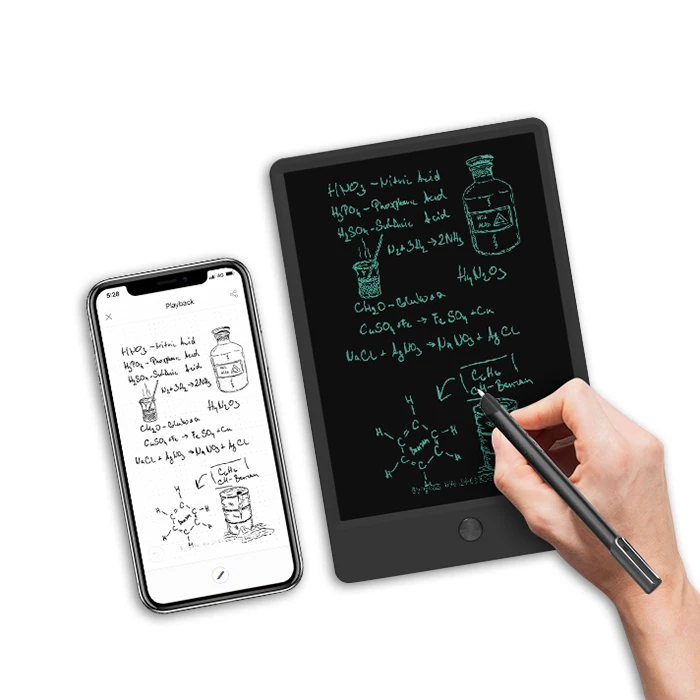 5:28
4G
Playback
HNO3 - Nitric Acid
H3PO4 - Phosphoric Acid
H2SO4 - Sulfuric Acid
N2 + 3H2 → 2NH3
H4N2O3
CH2O - Glukoza
CuSO4 + Fe → FeSO4 + Cu
NaCl + AgNO3 → NaNO3 + AgCl
C6H6
CH - Benzen
H
H
C
C
C
H
H
C
C
C
H
H
HNO3 - Nitric Acid
H3PO4 - Phosphoric Acid
H2SO4 - Sulfuric Acid
N2 + 3H2 → 2NH3
H4N2O3
CH2O - Glukoza
CuSO4 + Fe → FeSO4 + Cu
NaCl + AgNO3 → NaNO3 + AgCl
C6H6
CH - Benzen
H
H
C
C
C
H
H
C
C
C
H
H